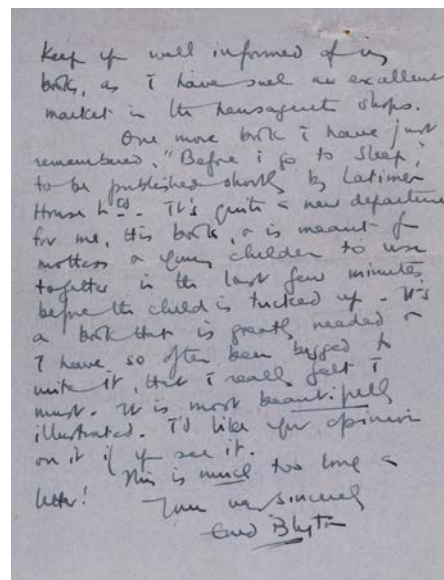 Keep yr well informed of my
books, as I have such an excellent
market in the newsagents shops.
One more book I have just
remembered, "Before I go to Sleep",
to be published shortly by Latimer
House Ltd. It's quite a new departure
for me, this book, & is meant for
mothers & young children to use
together in the last few minutes
before the child is tucked up - It's
a book that is greatly needed &
I have so often been begged to
write it, that I really felt I
must. It is most beautifully
illustrated. I'd like yr opinion
on it if yr see it.
This is much too long a
letter!
Yours very sincerely
Enid Blyton